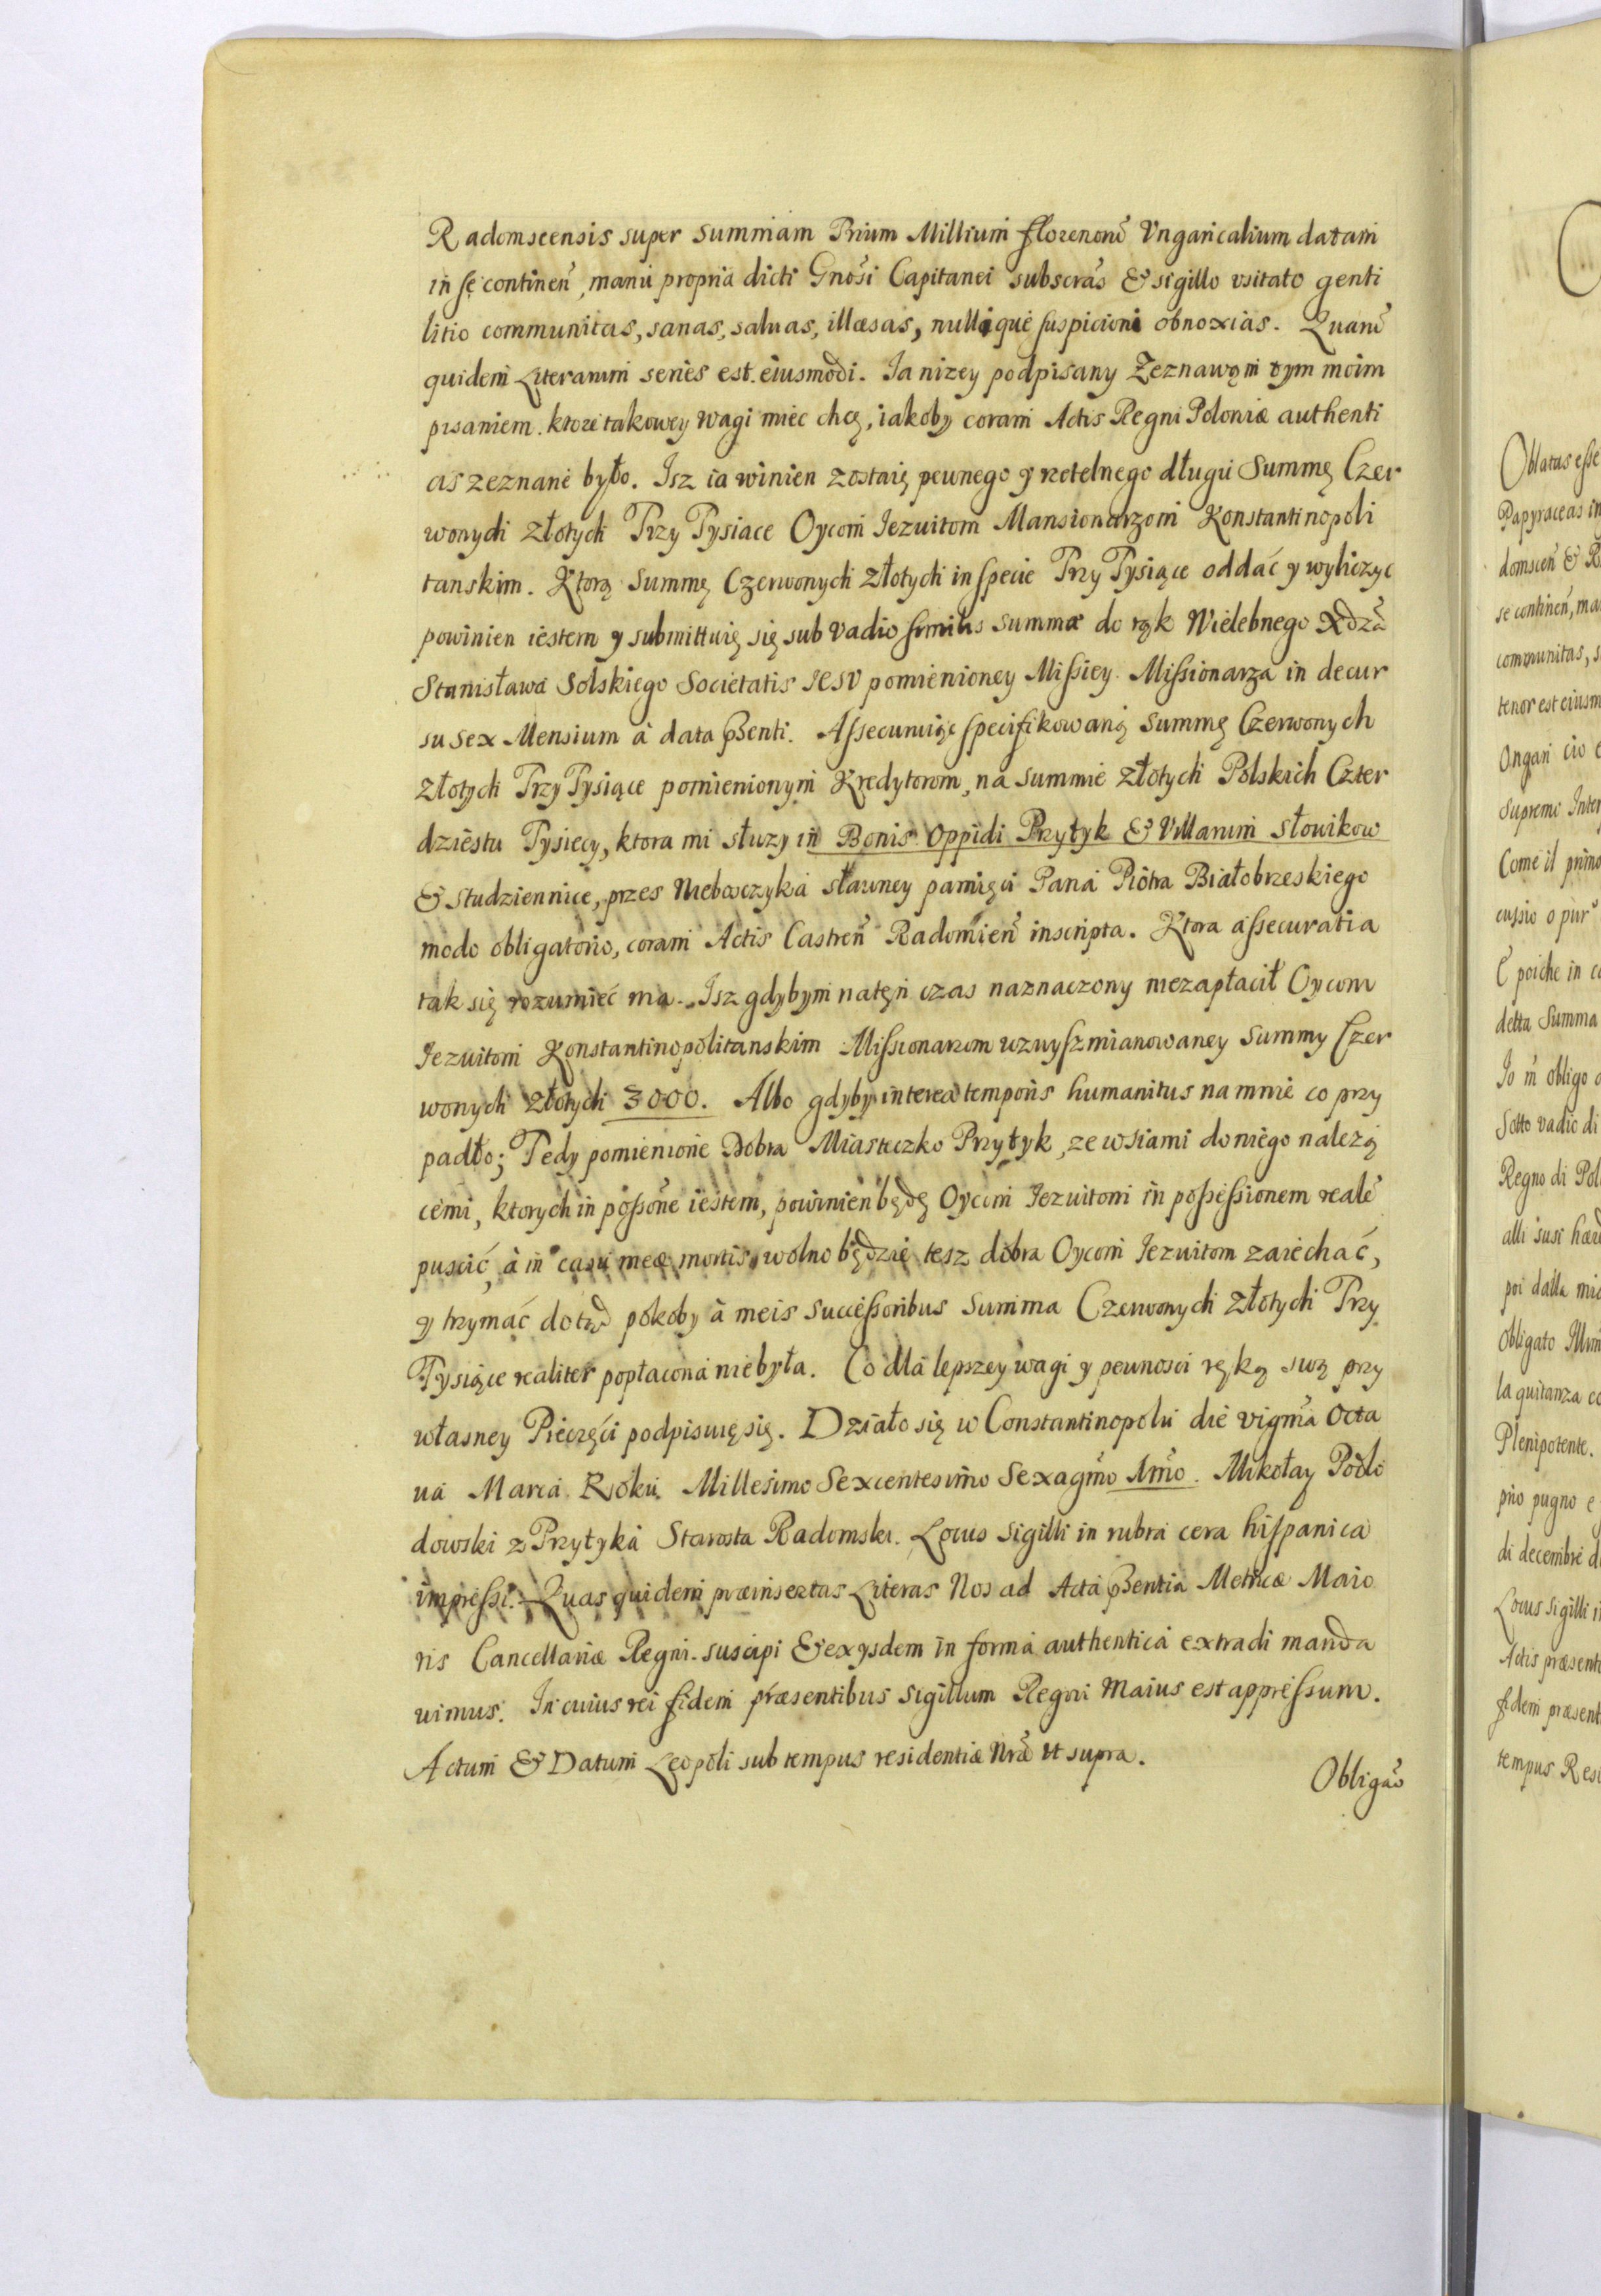 Radomscensis super summam Trium Millium florenorũ Vngaricalium datam
in se continen̄, manu propria dicti Gnõsi Capitanei subscrãs & sigillo vsitato genti
litio communitas, sanas, saluas, illæsas, nullique suspicioni obnoxias. Quarũ
quidem Literarum series est eiusmodi. Ia nizey podpisany Zeznawam tym moim
pisaniem. ktore takowey wagi miec chcę, iakoby coram Actis Regni Poloniæ authenti
cis zeznane było. Isz ia winien zostaię pewnego y rzetelnego długu Summę Czer
wonych złotych Trzy Tysiace Oycom Iezuitom Mansionarzom Konstantinopoli
tanskim. Ktorą Summę Czerwonych złotych in specie Trzy Tysiące oddać y wyliczyc
powinien iestem y submittuię się sub vadio similis summæ do rąk Wielebnego Xdzã
Stanisława Solskiego Societatis IESV pomienioney Missiey Missionarza in decur
su sex Mensium à data p̃senti. Assecuruiąc specifikowaną Summę Czerwonych
złotych Trzy Tysiące pomienionym Kredytorom, na summie złotych Polskich Czter
dziestu Tysiecy, ktora mi słuzy in Bonis Oppidi Przytyk & Villarum Słowikow
& Studziennice, przes Nieboczyka sławney pamięci Pana Piotra Białobrzeskiego
modo obligatorio, coram Actis Castren̄ Radomien̄ inscripta. Ktora assecuratia
tak się rozumieć ma. Isz gdybym na ten czas naznaczony niezapłacił Oycom
Iezuitom Konstantinopolitanskim Missionarzom wzwyszmianowaney Summy Czer
wonych złotych 3000. Albo gdyby interea temporis humanitus na mnie co przy
padło; Tedy pomienione Dobra Miasteczko Przytyk, ze wsiami do niego nalezą
cemi, ktorych in possõne iestem, powinien będę Oycom Iezuitom in possessionem realẽ
puscić, à in casu meæ mortis, wolno będzie tesz dobra Oycom Iezuitom zaiechać,
y trzymać dotąd pokoby à meis successoribus Summa Czerwonych złotych Trzy
Tysiące realiter popłacona niebyła. Co dla lepszey wagi y pewnosci ręką swą przy
własney Pieczęci podpisuię się. Działo się w Constantinopolu die vigm̃a Octa
ua Marca Roku Millesimo Sexcentesimo Sexagm̃o Im̃o. Mikołay Podlo
dowski z Przytyka Starosta Radomski. Locus Sigilli in rubra cera hispanica
impressi. Quas quidem præinsertas Literas Nos ad Acta p̃sentia Metricæ Maio
ris Cancellariæ Regni suscipi & exysdem in forma authentica extradi manda
uimus. In cuius rei fidem præsentibus Sigillum Regni Maius est appressum.
Actum & Datum Leopoli sub tempus residentiæ Nræ vt supra.
Obligão
Oblatas esse
Papyraceas in
domscen̄ &
se continen̄, ma
communitas, s
tenor est eiusm
Ongari cio
Supremo Inter
Come il primo
cussio o pur
E poiche in
detta Summa
Io m̃ obligo
Sotto vadio di
Regno di Pol
alli suoi hæ
poi dalla mia
Obligato
la quitanza
Plenipotente.
pñio pugno e
di decembre d
Locus sigilli i
Actis præsent
fidem præsent
tempus Resi